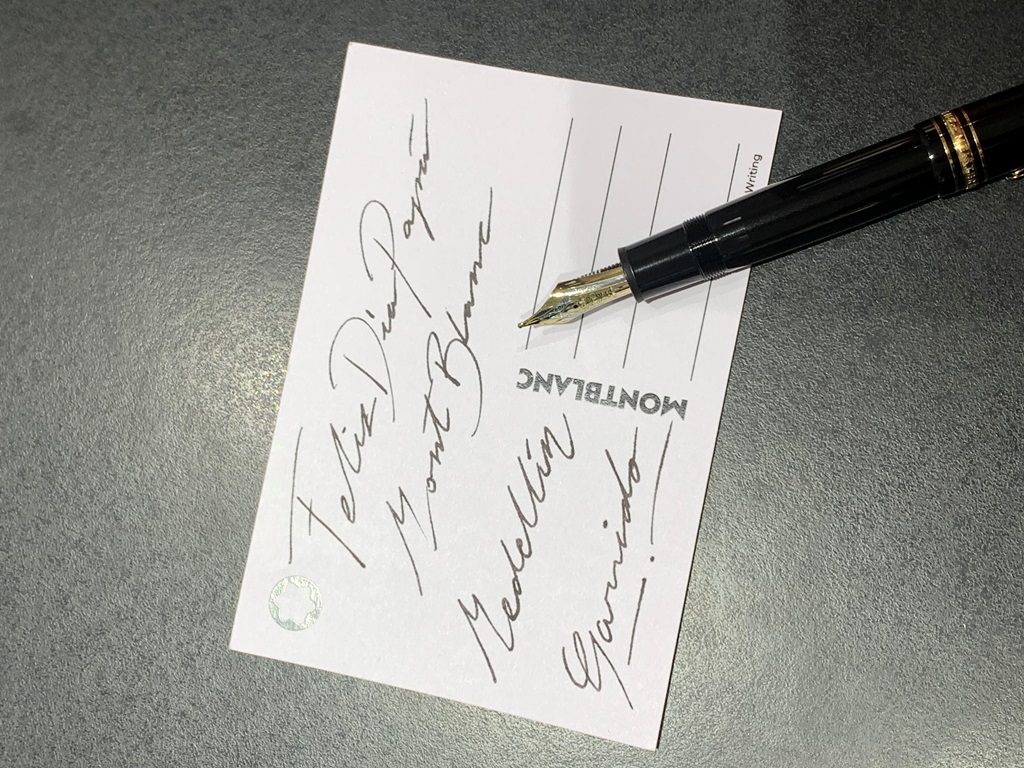 Feliz Dia
Mont Blanc
Medellín
Garrido
MONTBLANC
Writing